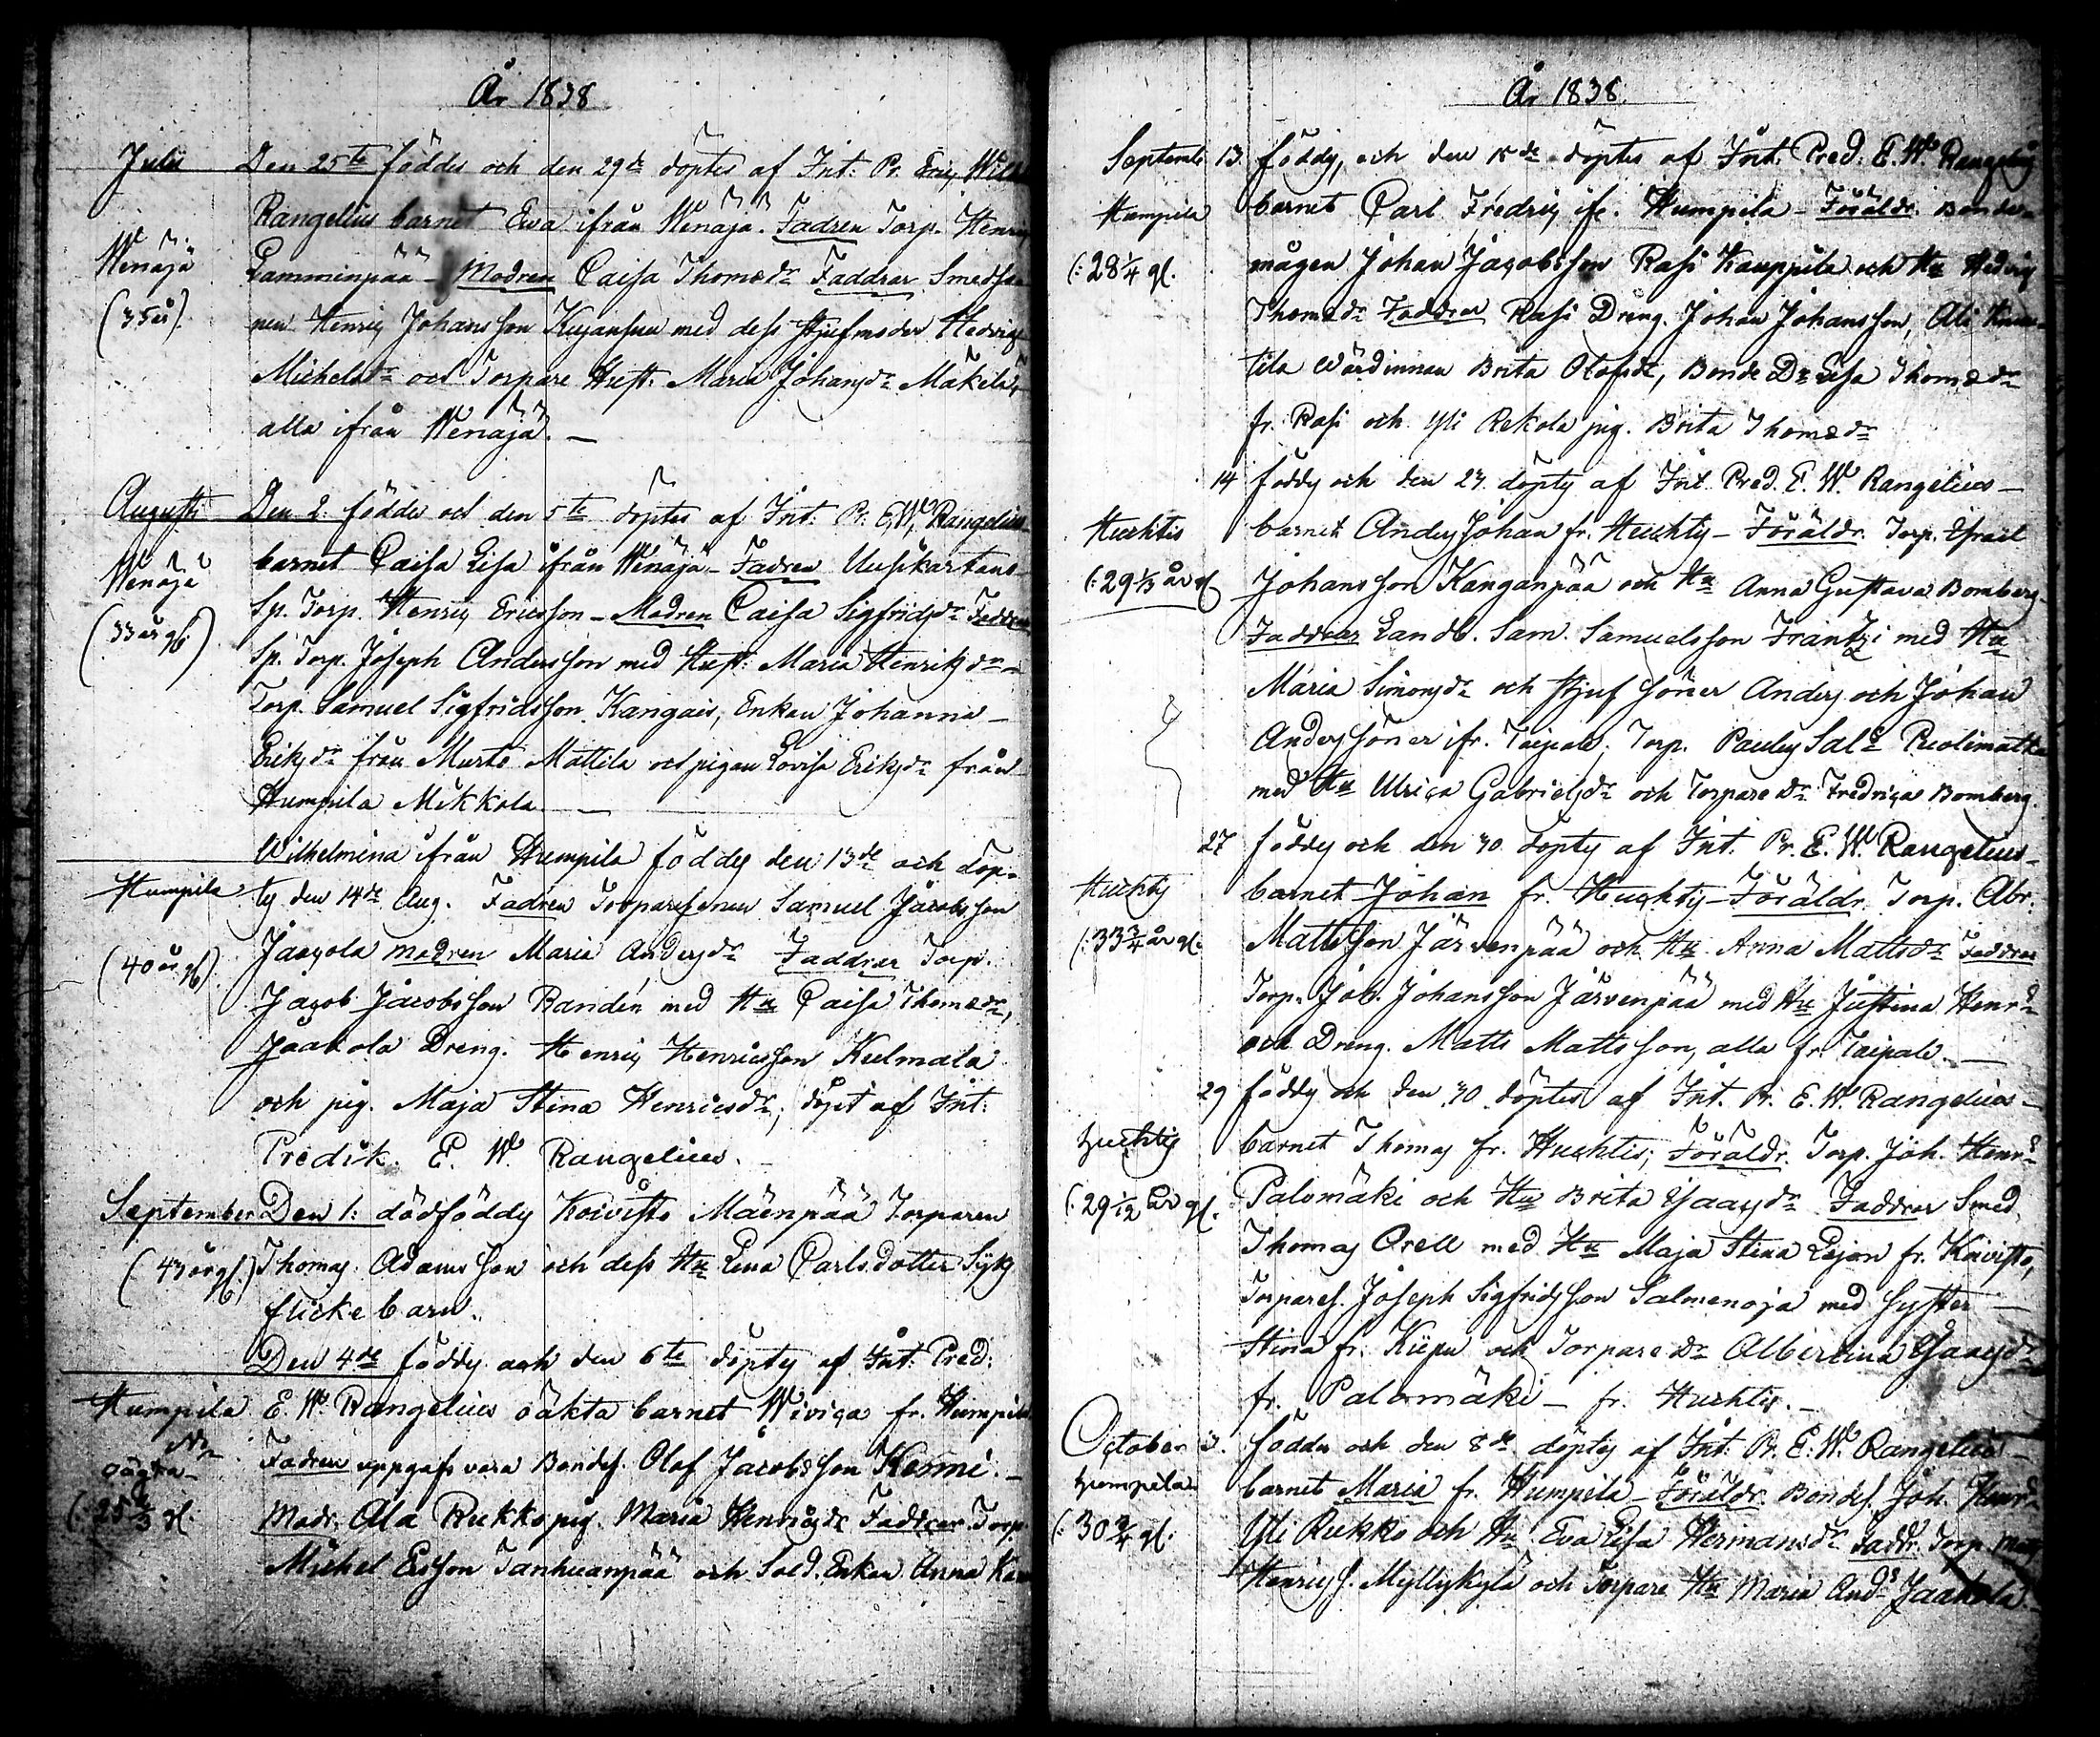 År 1838
Julii Den 25te föddes och den 29de döptes af Int. Pr. Eric Wilh
Rangelius barnet Eva ifrån Wenäjä. Fadren Torp. Henric
Wenäjä Lamminpää – Modren Caisa Thomædr Faddrar Smedso-
(35 år) nen Henric Johansson Kujansuu med dess Stjufmoder Hedvig
Michelsdr och Torpare Hust. Maria Johansdr Mäkilä,
alla ifrån Wenäjä. –
Augusti Den 2. föddes och den 5te döptes af Int. Pr. E. W. Rangelius
Wenäjä barnet Caisa Lisa ifrån Wenäjä – Fadren Uusikartano
Sp. Torp. Henric Ericsson – Modren Caisa Sigfridsdr Faddrar
(33 år gl.) Sp. Torp. Joseph Andersson med Hust. Maria Henriksdr –
Torp. Samuel Sigfridsson Kangais, Enkan Johanna –
Eriksdr från Murto Mattila och pigan Lovisa Eriksdr från
Humpila Mikkola. –
Wilhelmina ifrån Humpila föddes den 13de och döp-
Humpila tes den 14de Aug. Fadren Torparesonen Samuel Jacobsson
(40 år gl.) Jaakola modren Maria Andersdr Faddrar Torp.
Jacob Jacobsson Randén med Hu Caisa Thomædr,
Jaakola Dreng. Henric Henricsson Kulmala
och pig. Maja Stina Henricsdr, döpt af Int.
Predik. E. W. Rangelius. –
September Den 1: dödföddes Koivisto Mäenpää Torparen
(43 år gl.) Thomas Adamsson och dess Hu Lena Carlsdotter Syks
flickebarn.
Den 4de föddes och den 6te döptes af Int. Pred.
Humpila E. W. Rangelius oäkta barnet Wivica fr. Humpila
oägta Fadren uppgafs vara Bondes. Olof Jacobsson Kenni. –
(: 25 2/3 gl. Modr. Ala Rukko pig. Maria Henricsdr Faddrar Torp.
Michel Ersson Tanhuanpää och Sold. Enkan Anna
År 1838.
Septemb. 13. föddes, och den 15de döptes af Int. Pred. E. W. Rangelius
Humpila barnet Carl Fredric ifr. Humpila – Föräldr. Bonde-
(: 28 1/4 gl. mågen Johan Jacobsson Rasi Kauppila och Hu Hedvig
Thomædr Faddrar Rasi Dreng. Johan Johansson, Ali
tila Wärdinnan Brita Olofsdr, Bonde Dr Lisa Thomædr
fr. Rasi och Yli Rekola pig. Brita Thomædr
14 föddes och den 23. döptes af Int. Pred. E. W. Rangelius –
Huchtis barnet Anders Johan fr. Huchtis – Föräldr. Torp. Israel
(: 29 1/3 år gl Johansson Kanganpää och Hu Anna Gustava Bomberg –
Faddrar Landb. Sam. Samuelsson Frantzi med Hu
Maria Simonsdr och Stjuf söner Anders och Johan
Anderssöner ifr. Taipale, Torp. Paulus Sals Puolimatka
med Hu Ulrica Gabrielsdr och Torpare Dr Fredrica Bomberg.
27 föddes och den 30. döptes af Int. Pr. E. W. Rangelius –
Huchtis barnet Johan fr. Huchtis – Föräldr. Torp. Abr.
(: 33 3/4 år gl. Mattsson Järvenpää och Hu Anna Mattsdr Faddrar
Torp. Joh. Johansson Järvenpää med Hu Justina Henrd
och Dreng. Matts Mattsson, alla fr. Taipale. –
29 föddes och den 30 döptes af Int. Pr. E. W. Rangelius –
Huchtis barnet Thomas fr. Huchtis; Föräldr. Torp. Joh. Henrs
(: 29 1/12 år gl. Palomäki och Hu Brita Isaacsdr Faddrar Smed.
Thomas Orell med Hu Maja Stina Lejon fr. Koivisto,
Torpares. Joseph Sigfridsson Salmenoja med syster –
Stina fr. Kiipu och Torpare Dr Albertina Isaacsdr
fr. Palomäki – fr. Huchtis. –
October 3. föddes och den 8de döptes af Int. Pr. E. W. Rangelius –
Humpila barnet Maria fr. Humpila – Föräldr. Bondes. Joh. Henrs
(: 30 3/4 gl. Yli Rukko och Hu Eva Lisa Hermansdr Faddr. Torp.
Henrics. Myllykylä och Torpare Hu Maria Andr Jaakola.